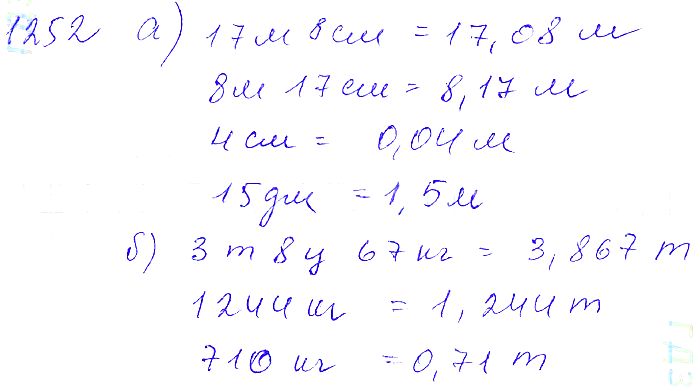 1252 а) 17м 8см = 17,08 м
8м 17см = 8,17 м
4см = 0,04 м
15дм = 1,5м
б) 3 т 8ц 67 кг = 3,867 т
1244кг = 1,244т
710 кг = 0,71 т